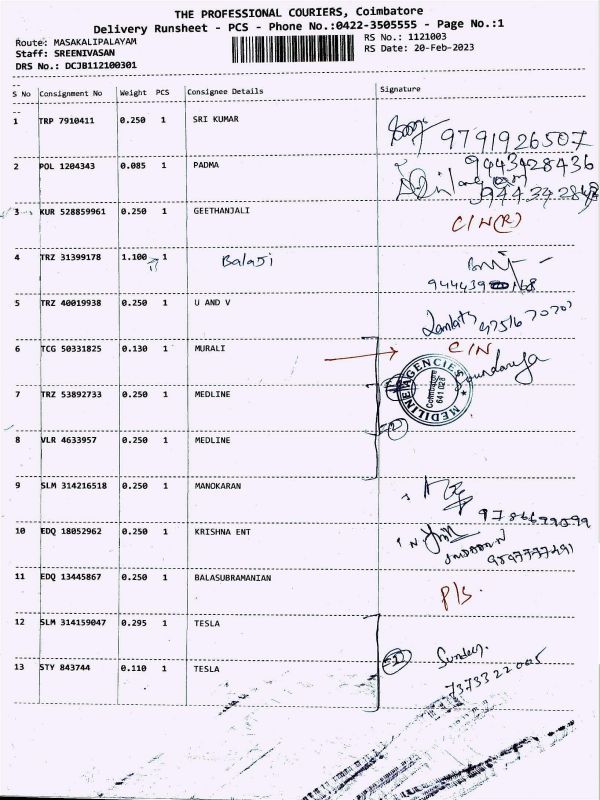 THE PROFESSIONAL COURIERS, Coimbatore
Delivery Runsheet - PCS - Phone No.:0422-3505555 - Page No.:1
Route: MASAKALIPALAYAM
RS No.: 1121003
Staff: SREENIVASAN
RS Date: 20-Feb-2023
DRS No.: DCJB112100301
S No Consignment No Weight PCS Consignee Details Signature
1 TRP 7910411 0.250 1 SRI KUMAR
9791926507
2 POL 1204343 0.085 1 PADMA
9443428436
3 KUR 528859961 0.250 1 GEETHANJALI
C/N(R)
4 TRZ 31399178 1.100 1 Balaji
5 TRZ 40019938 0.250 1 U AND V
6 TCG 50331825 0.130 1 MURALI
C/N
Soundarya
7 TRZ 53892733 0.250 1 MEDLINE
MEDILINE AGENCIES
Coimbatore
641 028
8 VLR 4633957 0.250 1 MEDLINE
9 SLM 314216518 0.250 1 MANOKARAN
10 EDQ 18052962 0.250 1 KRISHNA ENT
9597777491
11 EDQ 13445867 0.250 1 BALASUBRAMANIAN
P/S.
12 SLM 314159047 0.295 1 TESLA
13 STY 843744 0.110 1 TESLA
7373322005